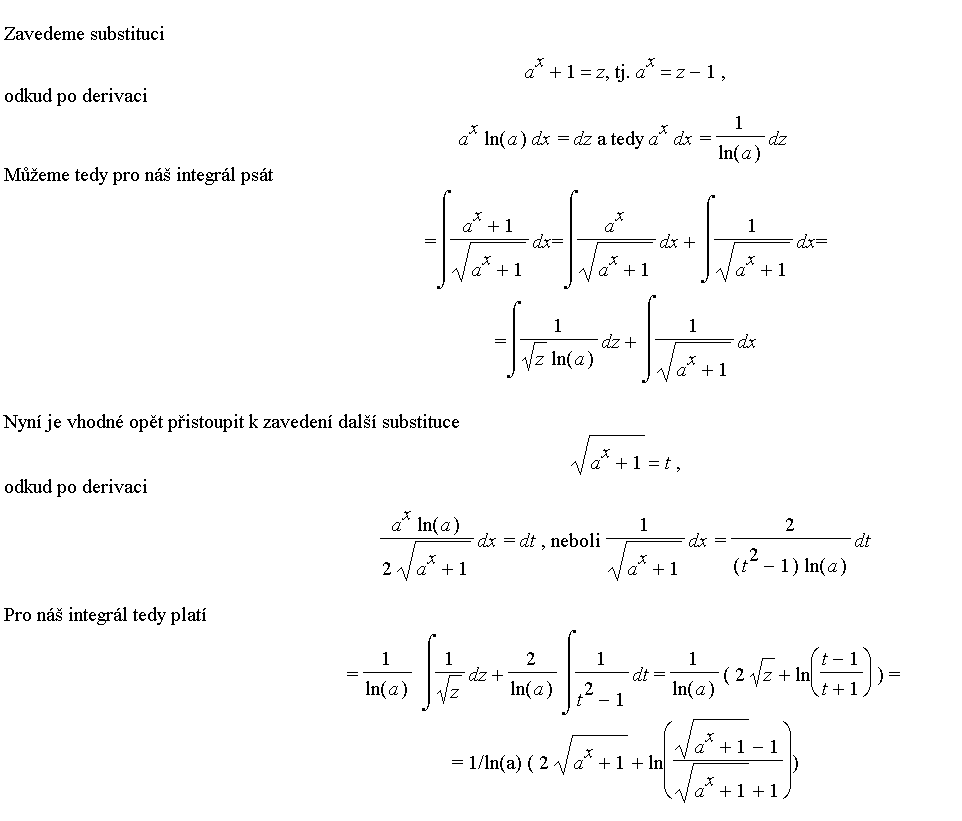 Zavedeme substituci
a^x + 1 = z, tj. a^x = z − 1 ,
odkud po derivaci
a^x ln(a) dx = dz a tedy a^x dx = 1/ln(a) dz
Můžeme tedy pro náš integrál psát
= ∫ (a^x + 1)/√(a^x + 1) dx= ∫ a^x/√(a^x + 1) dx + ∫ 1/√(a^x + 1) dx=
= ∫ 1/(√z ln(a)) dz + ∫ 1/√(a^x + 1) dx
Nyní je vhodné opět přistoupit k zavedení další substituce
√(a^x + 1) = t ,
odkud po derivaci
(a^x ln(a))/(2 √(a^x + 1)) dx = dt , neboli 1/√(a^x + 1) dx = 2/((t^2 − 1) ln(a)) dt
Pro náš integrál tedy platí
= 1/ln(a) ∫ 1/√z dz + 2/ln(a) ∫ 1/(t^2 − 1) dt = 1/ln(a) ( 2 √z + ln((t − 1)/(t + 1)) ) =
= 1/ln(a) ( 2 √(a^x + 1) + ln((√(a^x + 1) − 1)/(√(a^x + 1) + 1)))